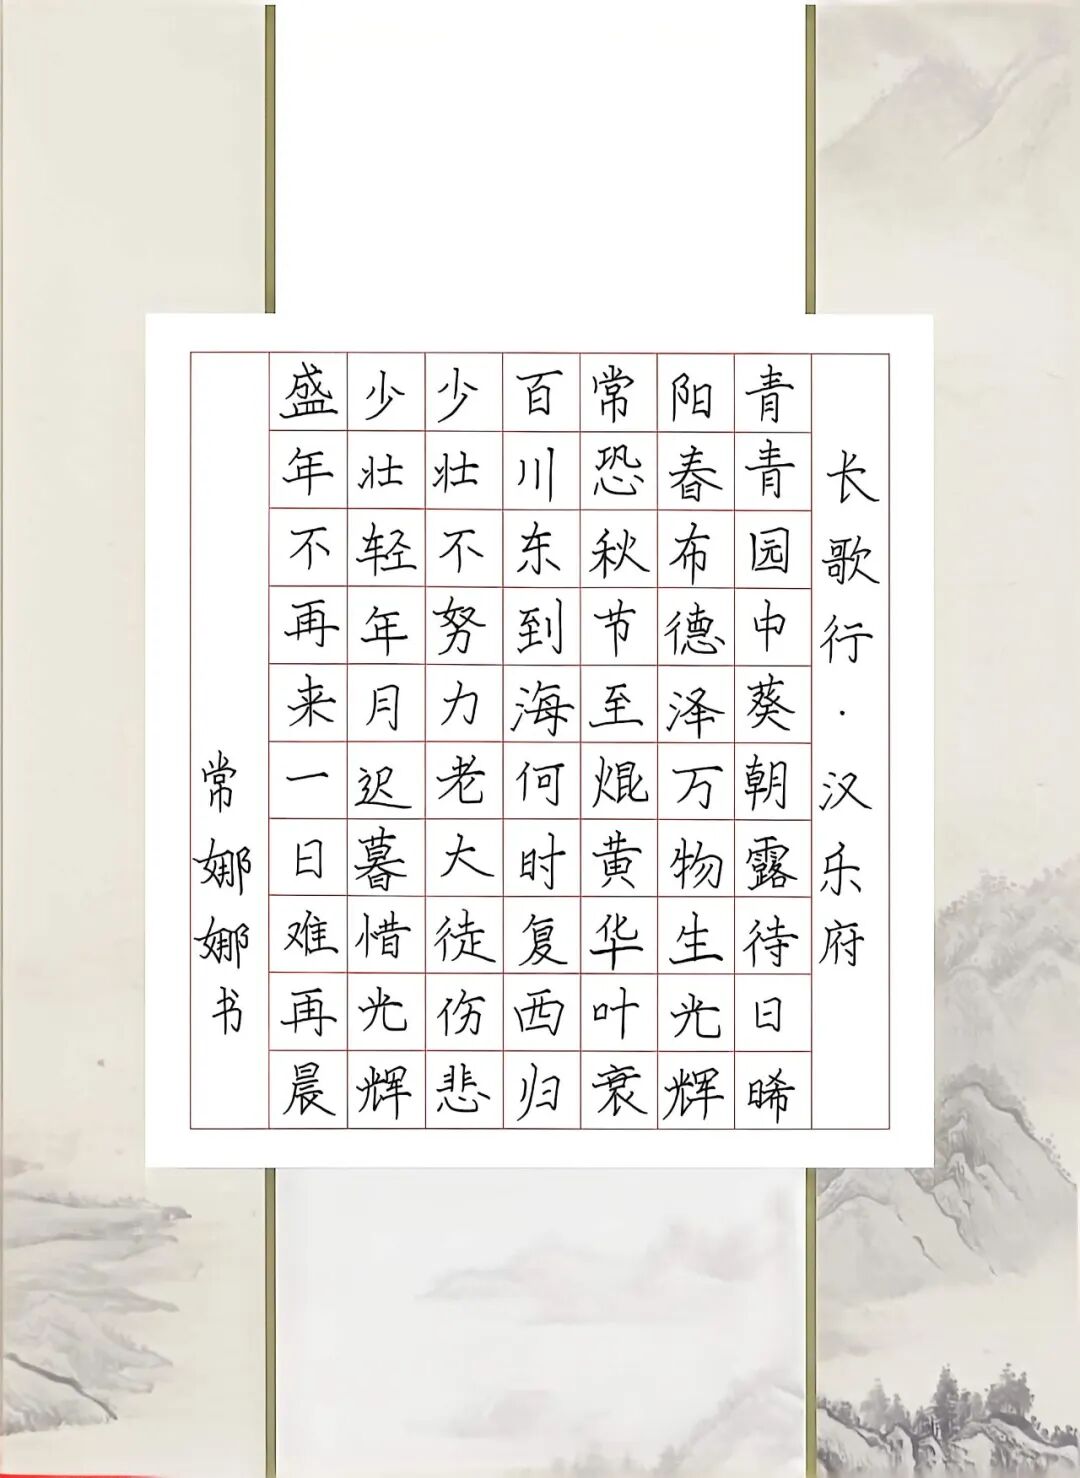 长歌行·汉乐府
青青园中葵朝露待日晞
阳春布德泽万物生光辉
常恐秋节至焜黄华叶衰
百川东到海何时复西归
少壮不努力老大徒伤悲
少壮轻年月迟暮惜光辉
盛年不再来一日难再晨
常娜娜书